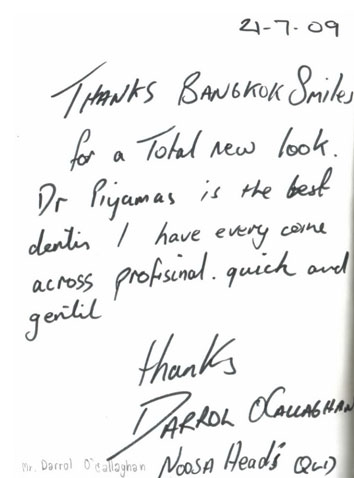 21-7-09
THANKS BANGKOK Smiles
for a Total new look.
Dr Piyamas is the best
dentis I have every come
across profisinal. quick and
gentil
thanks
DARROL O'CALLAGHAN
NOOSA Head's (QLD)
Mr. Darrol O'Callaghan